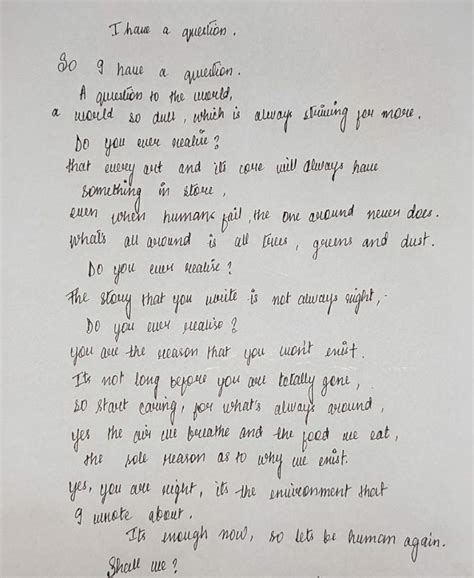 I have a question.
So I have a question.
A question to the world,
a world so dull, which is always striving for more.
Do you ever realise?
that every art and its core will always have
something in store,
even when humans fail, the one around never does.
whats all around is all trees, greens and dust.
Do you ever realise?
The story that you write is not always right,
Do you ever realise?
you are the reason that you won't exist.
Its not long before you are totally gone,
so start caring, for what's always around,
yes the air we breathe and the food we eat,
the sole reason as to why we exist.
yes, you are right, it's the environment that
I wrote about.
Its enough now, so lets be human again.
Shall we?